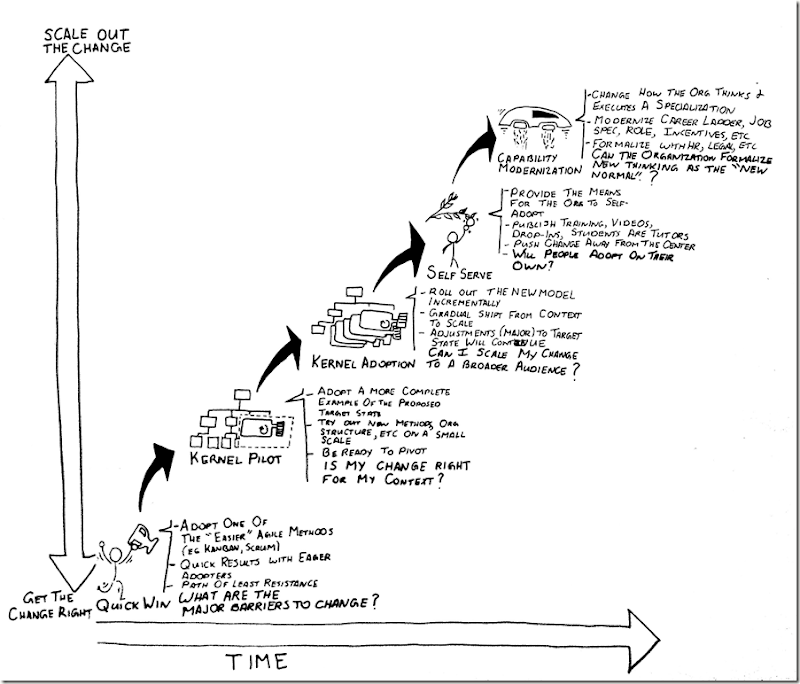 SCALE OUT
THE CHANGE
- CHANGE HOW THE ORG THINKS &
EXECUTES A SPECIALIZATION
- MODERNIZE CAREER LADDER, JOB
SPEC, ROLE, INCENTIVES, ETC
- FORMALIZE WITH HR, LEGAL, ETC
CAN THE ORGANIZATION FORMALIZE
NEW THINKING AS THE "NEW
NORMAL"?
CAPABILITY
MODERNIZATION
- PROVIDE THE MEANS
FOR THE ORG TO SELF-
ADOPT
- PUBLISH TRAINING, VIDEOS,
DROP-INS, STUDENTS ARE TUTORS
- PUSH CHANGE AWAY FROM THE CENTER
- WILL PEOPLE ADOPT ON THEIR
OWN?
SELF SERVE
- ROLL OUT THE NEW MODEL
INCREMENTALLY
- GRADUAL SHIFT FROM CONTEXT
TO SCALE
- ADJUSTMENTS (MAJOR) TO TARGET
STATE WILL CONTINUE
CAN I SCALE MY CHANGE
TO A BROADER AUDIENCE?
KERNEL ADOPTION
- ADOPT A MORE COMPLETE
EXAMPLE OF THE PROPOSED
TARGET STATE
- TRY OUT NEW METHODS, ORG
STRUCTURE, ETC ON A SMALL
SCALE
- BE READY TO PIVOT
IS MY CHANGE RIGHT
FOR MY CONTEXT?
KERNEL PILOT
- ADOPT ONE OF
THE "EASIER" AGILE METHODS
(EG KANBAN, SCRUM)
- QUICK RESULTS WITH EAGER
ADOPTERS
- PATH OF LEAST RESISTANCE
WHAT ARE THE
MAJOR BARRIERS TO CHANGE?
QUICK WIN
GET THE
CHANGE RIGHT
TIME